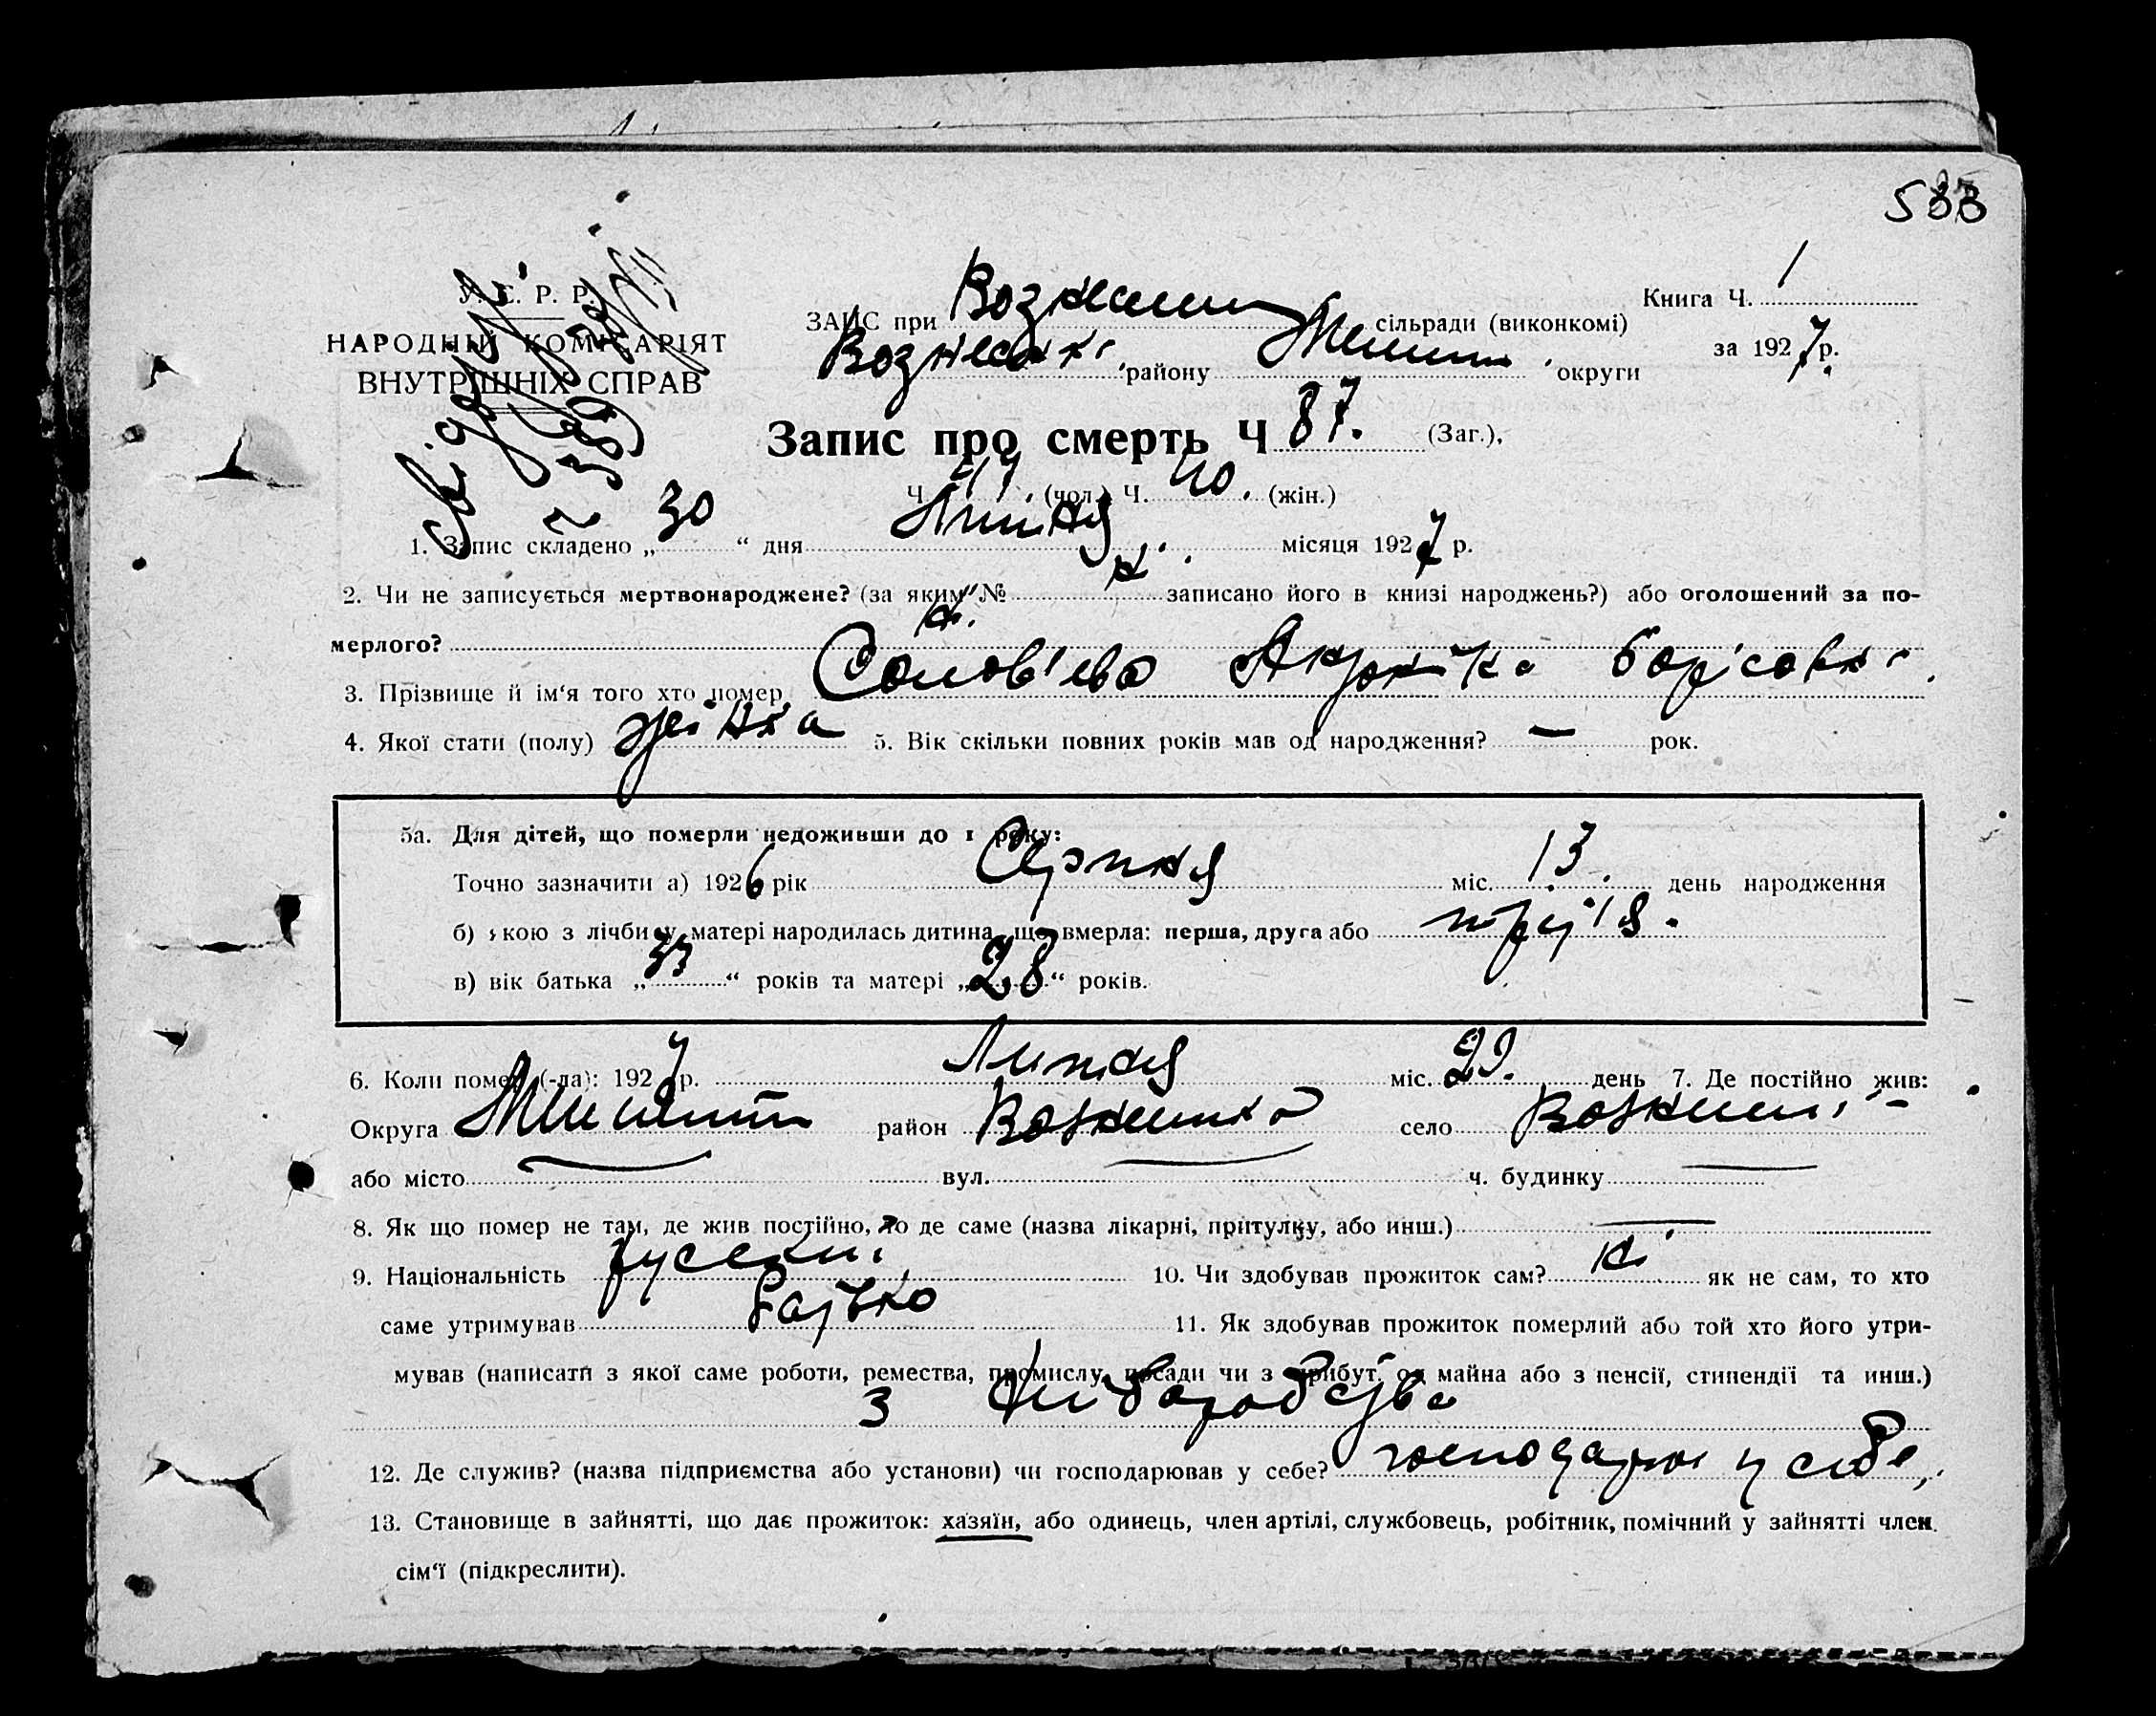 533
У. С. Р. Р.
НАРОДНІЙ КОМІСАРІЯТ
ВНУТРІШНІХ СПРАВ
Книга Ч. 1
за 1927 р.
ЗАПС при Вознесен сільради (виконкомі)
Вознесенк району Меліт округи
Запис про смерть Ч 87. (Заг.),
Ч 47. (чол.) Ч. 40. (жін.)
1. Запис складено „ 30 “ дня Липня місяця 1927 р.
2. Чи не записується мертвонароджене? (за яким № записано його в книзі народжень?) або оголошений за по-
мерлого?
3. Прізвище й ім'я того хто помер Солов'ева Борісовн
4. Якої стати (полу) жінка 5. Вік скільки повних років мав од народження? — рок.
5а. Для дітей, що померли недоживши до 1 року:
Точно зазначити а) 1926 рік Серпня міс. 13. день народження
б) якою з лічби у матері народилась дитина, що вмерла: перша, друга або третя.
в) вік батька „ 33 “ років та матері „ 28 “ років.
6. Коли помер (-ла): 1927 р. Липня міс. 29. день 7. Де постійно жив:
Округа Меліт район Вознесенка село Вознесен
або місто — вул. — ч. будинку —
8. Як що помер не там, де жив постійно, то де саме (назва лікарні, притулку, або инш.) —
9. Національність руський 10. Чи здобував прожиток сам? ні як не сам, то хто
саме утримував батько 11. Як здобував прожиток померлий або той хто його утри-
мував (написати з якої саме роботи, ремества, промислу, посади чи з прибут. од майна або з пенсії, стипендії та инш.)
з хліборобства
12. Де служив? (назва підприємства або установи) чи господарював у себе? господарює у себе,
13. Становище в зайнятті, що дає прожиток: хазяїн, або одинець, член артілі, службовець, робітник, помічний у зайнятті член
сім'ї (підкреслити).